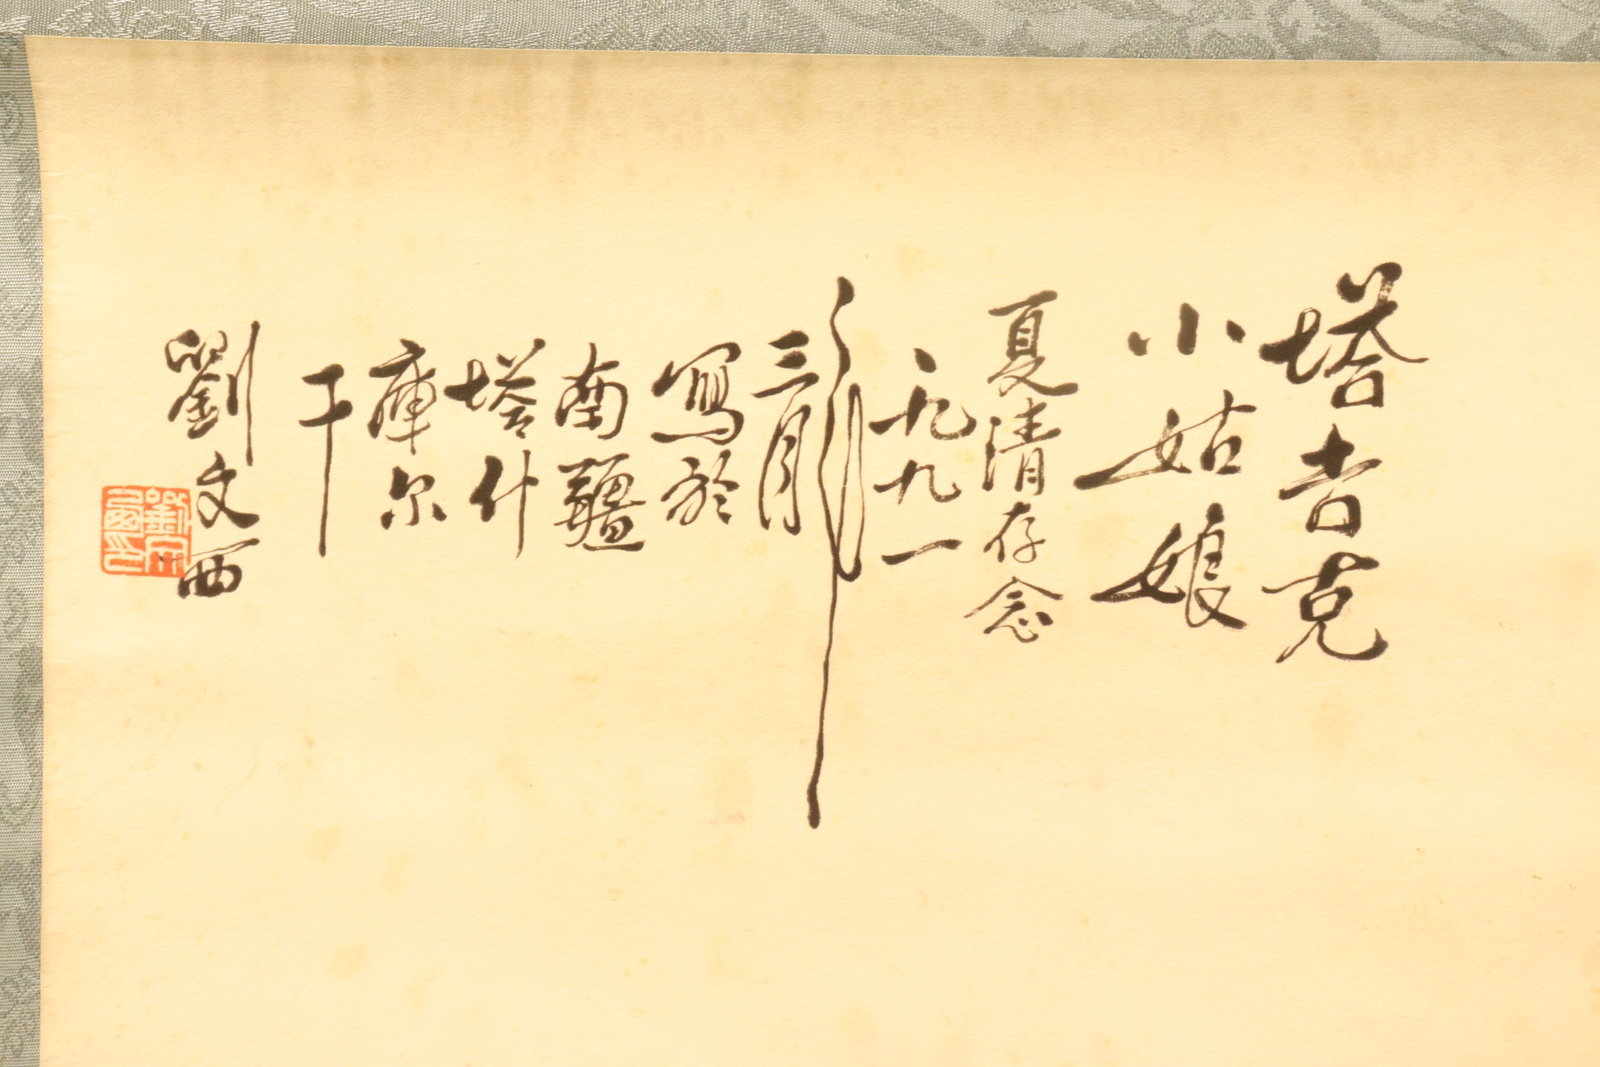 塔吉克
小姑娘
夏清存念
一九九一
年
三月
寫於
南疆
塔什
庫尔
干
劉文西